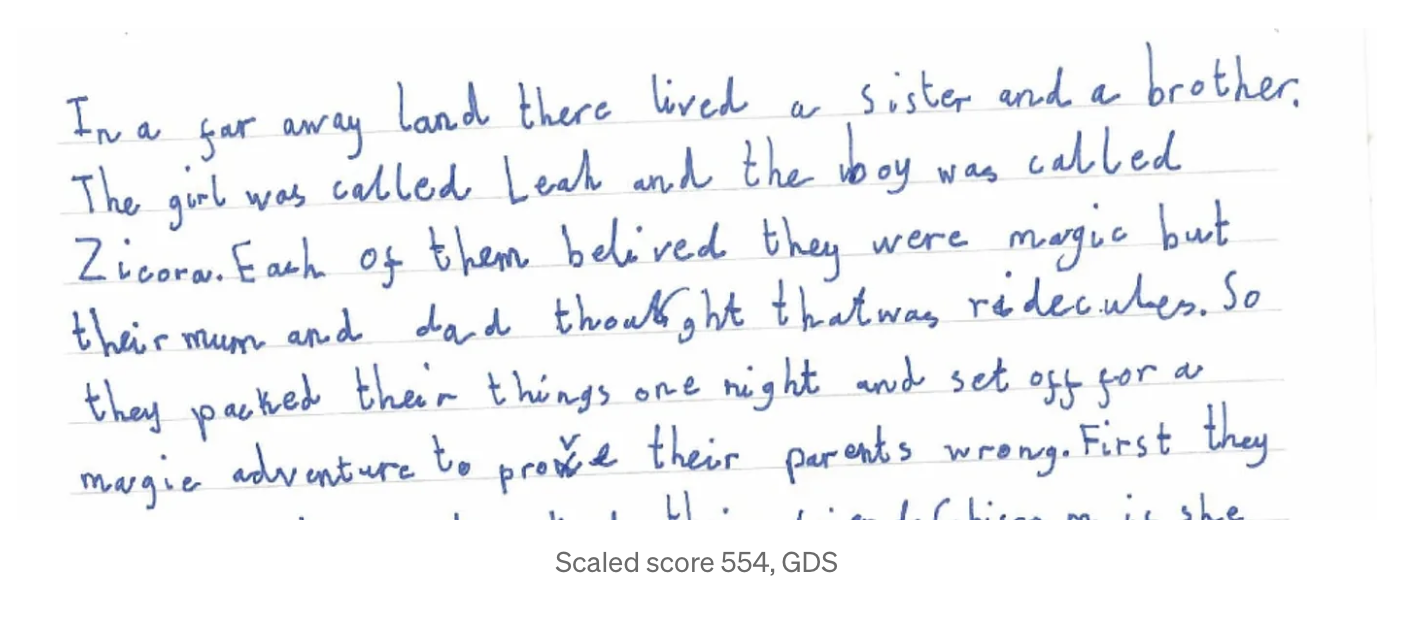 In a far away land there lived a sister and a brother.
The girl was called Leah and the boy was called
Zicora. Each of them belived they were magic but
their mum and dad thought that was ridecules. So
they packed their things one night and set off for a
magic adventure to prove their parents wrong. First they
is she
Scaled score 554, GDS